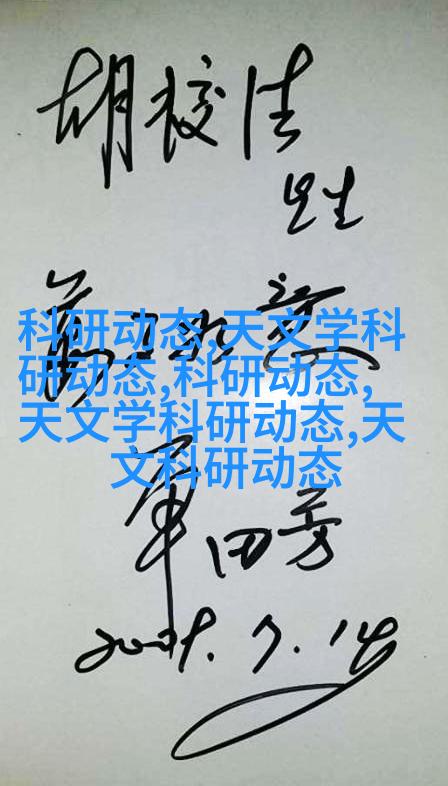 胡校
先生
科研动态,天文学科
研动态,科研动态,
天文学科研动态,天
文科研动态
单田芳